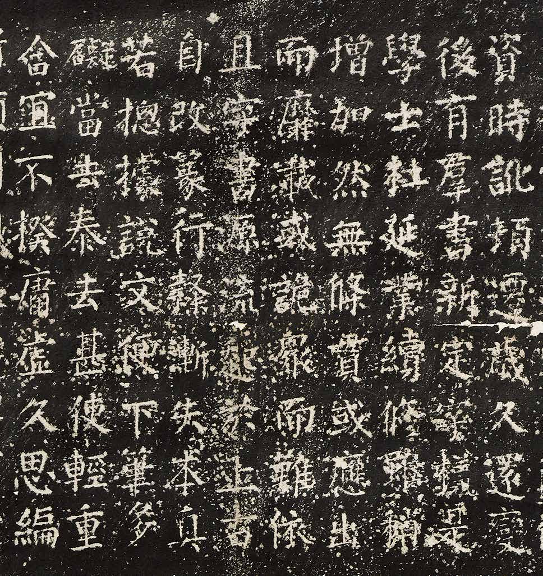 資時訛頓遷歲久還變
後有羣書新定字樣是
學士杜延業續修雖稍
增加然無條貫或應出
而靡載或詭衆而難依
且字書源流起於上古
自改篆行隸漸失本真
若摠據說文便下筆多
礙當去泰去甚使輕重
合宜不揆庸虛久思編